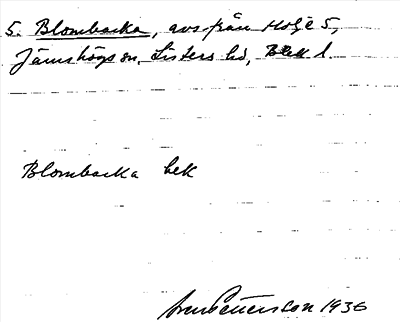 5. Blombacka, avs. från Holje 5,
Jämshögs sn, Listers hd, Blek l.
Blombacka bek
Pettersson 1936